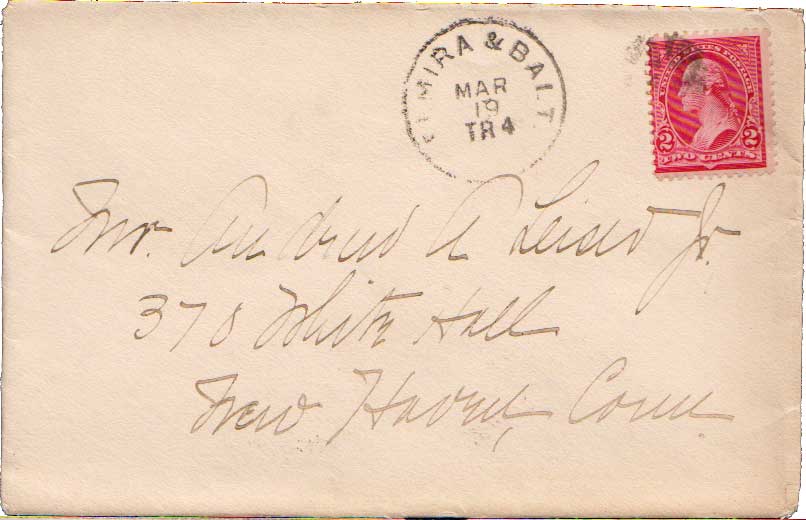 ELMIRA & BALT.
MAR
19
TR 4
UNITED STATES POSTAGE
2 2
TWO CENTS
Mr. Andrew A Jr.
378 White Hall
New Haven, Conn